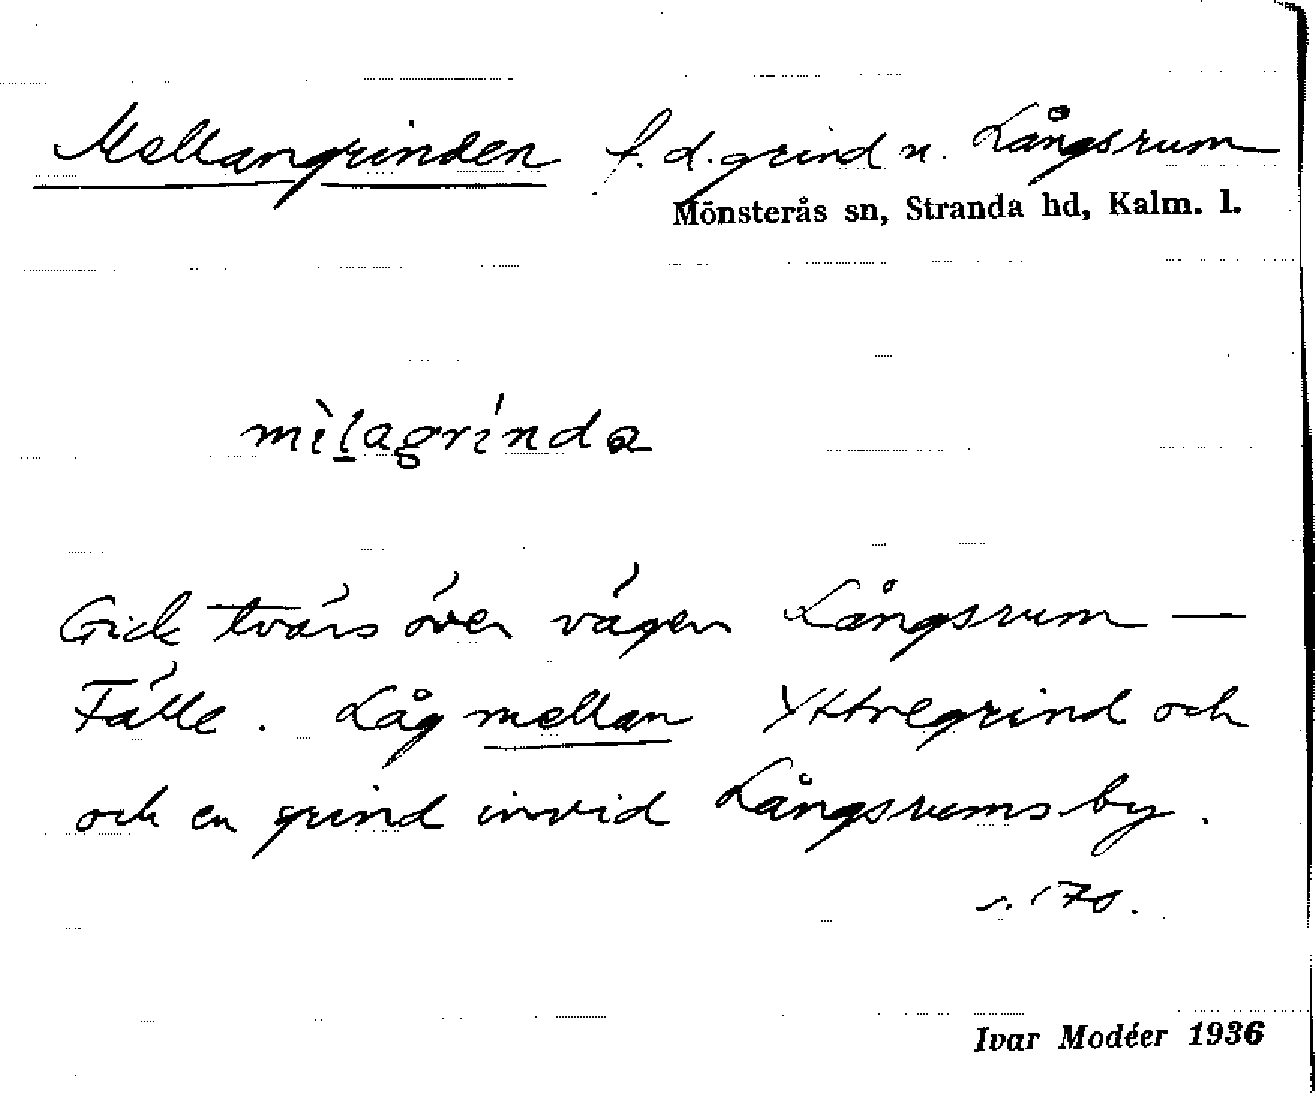 Mellangrinden f.d. grind n. Långsrum
Mönsterås sn, Stranda hd, Kalm. l.
mìlagrínda
Gick tvärs över vägen Långsrum —
Fälle. Låg mellan Yttregrind och
och en grind invid Långsrums by.
s. 170.
Ivar Modéer 1936